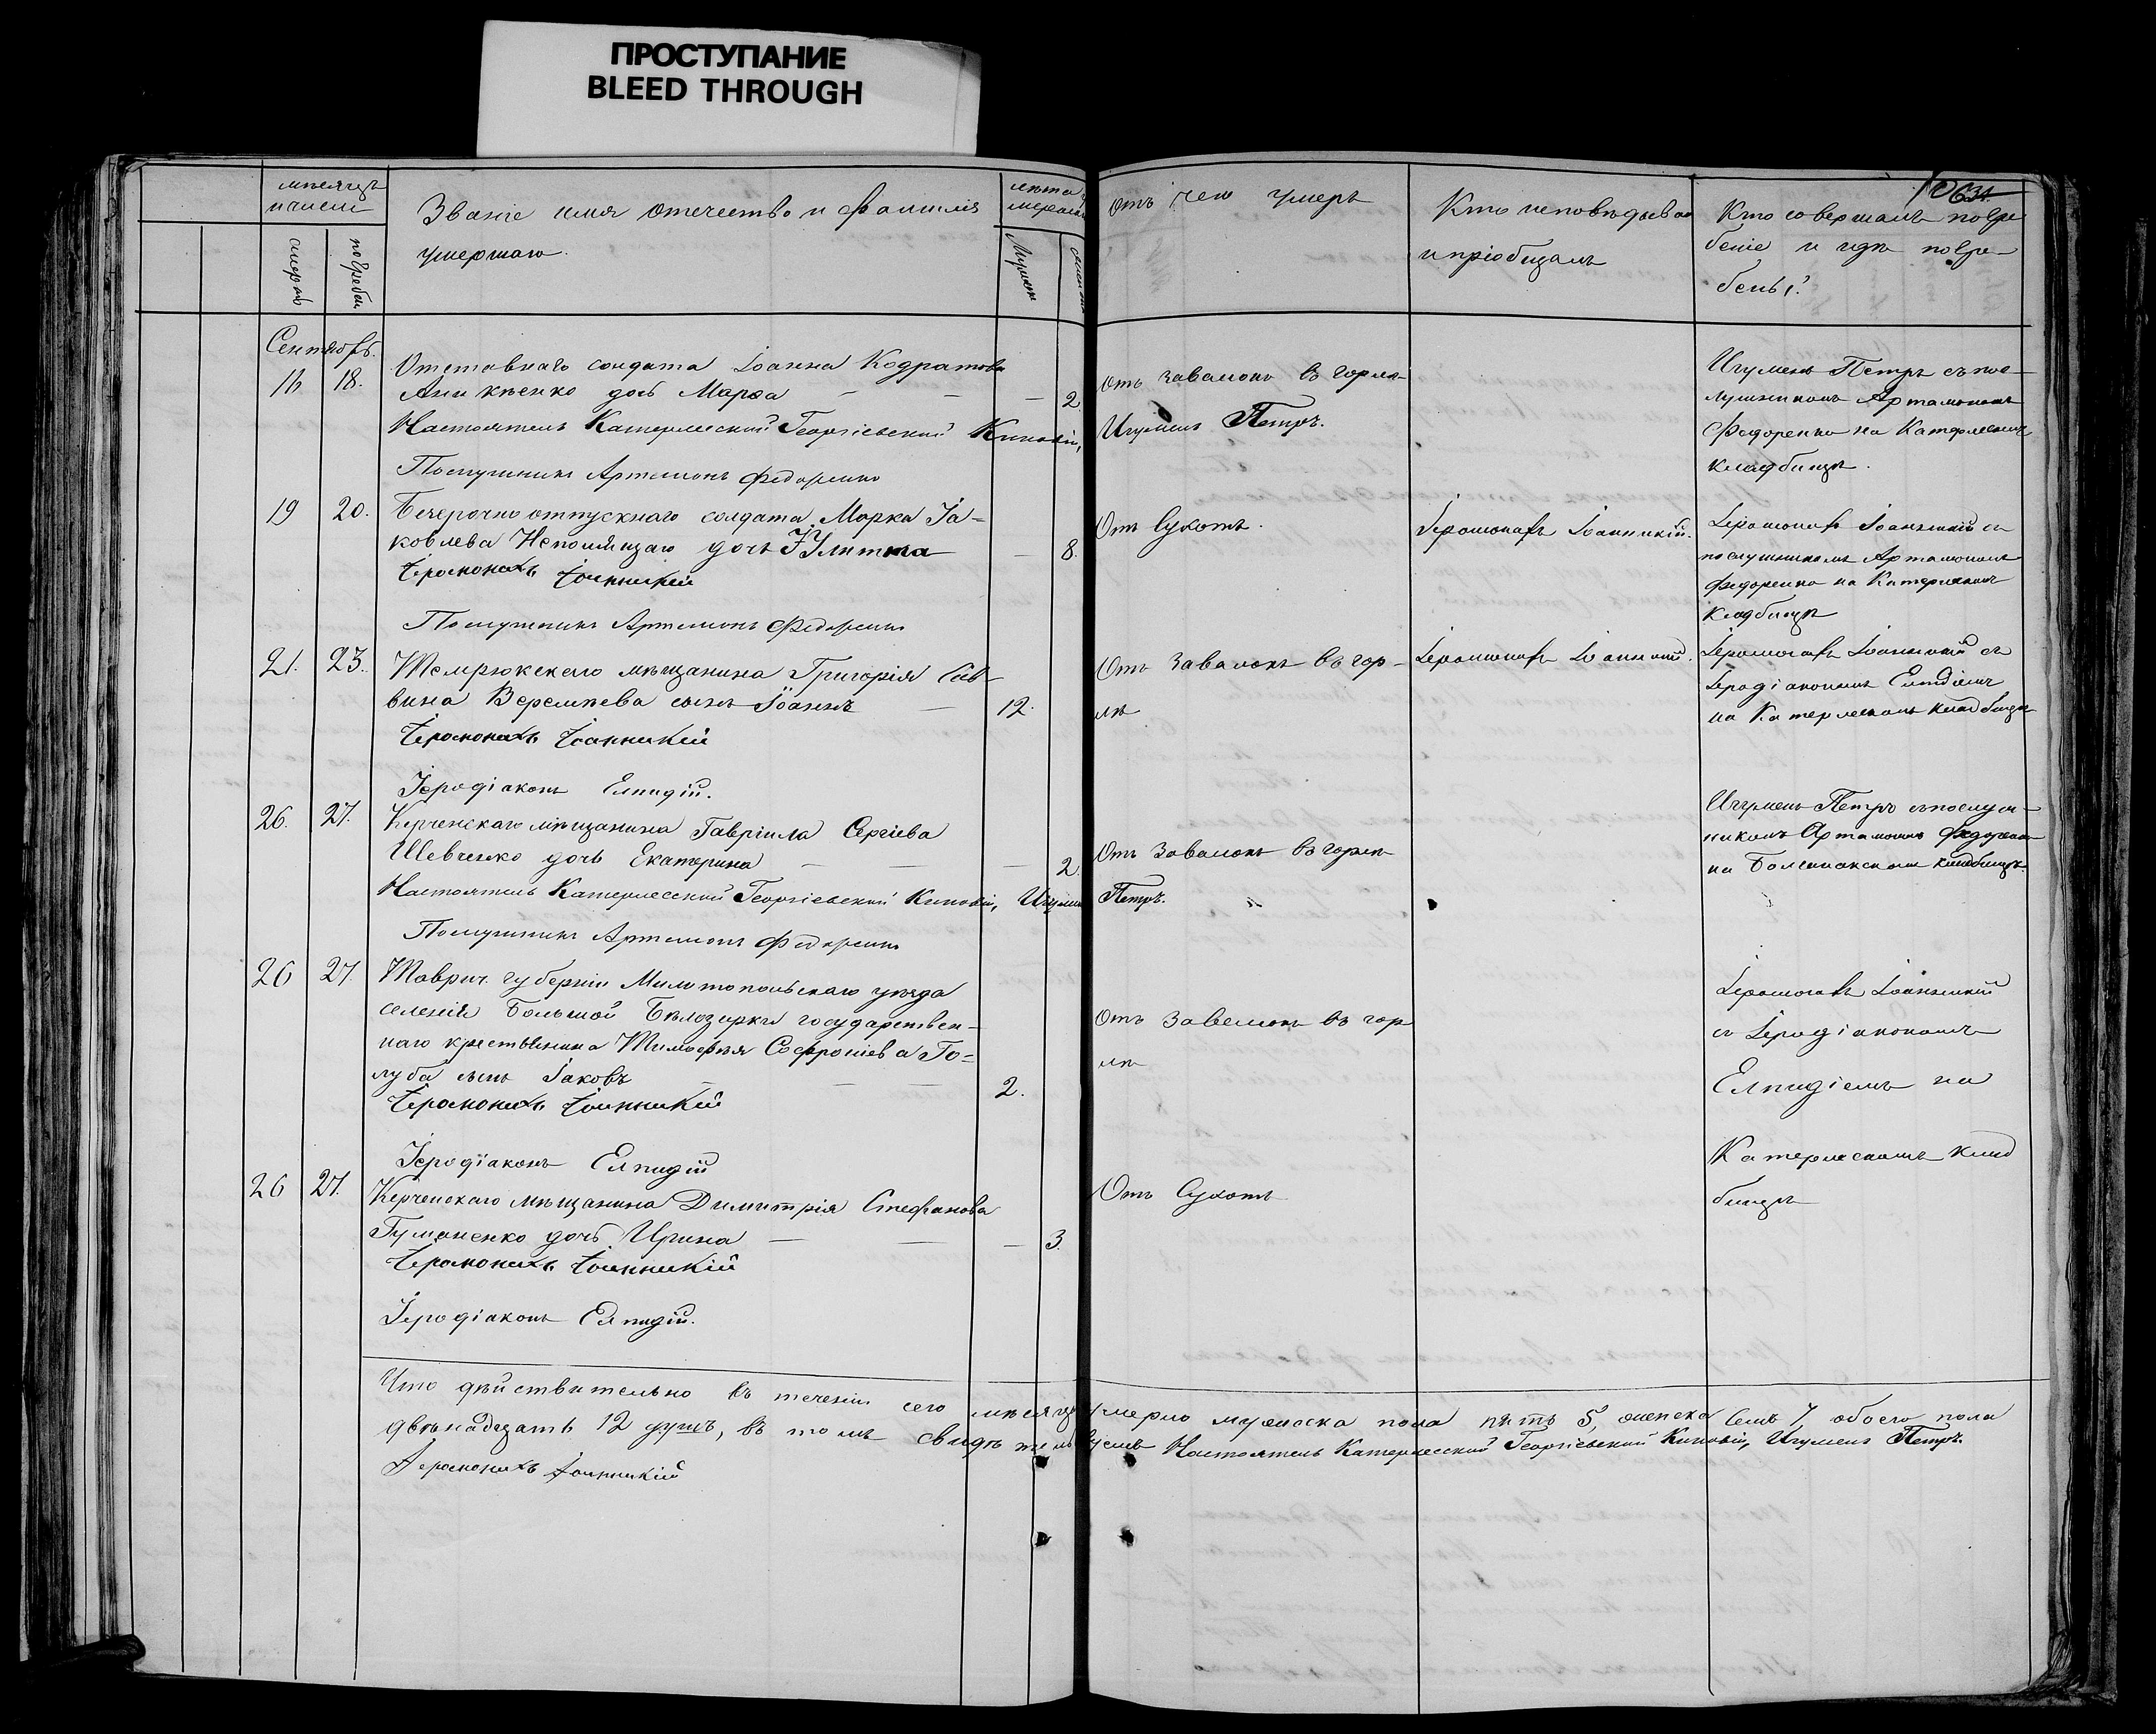 ПРОСТУПАНИЕ
BLEED THROUGH
мѣсяцъ
и число
смерть
погребен
Званіе имя отечество и фамилія
умершаго.
лѣта
Мужеск
Отъ чего умеръ
Кто исповѣдывал
и пріобщалъ
Кто совершалъ погре
беніе и гдѣ погре-
бены?
Сентябрь.
16 18. Отставнаго солдата Іоанна Кодратова
Аникѣенко дочь Марѳа — — — 2.
Отъ завалокъ въ горлѣ
Игуменъ Петръ съ пос-
лушникомъ Артамономъ
Федоренко на Катерлескомъ
кладбищѣ.
Настоятель Катерлесскій Георгіевский Киновіи, Игуменъ Петръ.
Послушникъ Артемонъ Федоренко
19 20. Безсрочно отпускнаго солдата Марка Іа-
ковлева Непомнящаго дочь Улитта — 8.
Отъ Сухотъ.
Іеромонахъ Іоанникій.
Іеромонахъ Іоанникій съ
послушникомъ Артамономъ
Федоренко на Катерлескомъ
кладбищѣ
Іеромонахъ Іоанникій
Послушникъ Артемонъ Федоренко
21. 23. Темрюкскаго мѣщанина Григорія Сав-
вина Веремѣева сынъ Іоаннъ — 12.
Отъ Завалокъ въ гор-
лѣ
Іеромонахъ Іоанникій.
Іеромонахъ Іоанникій съ
Іеродіакономъ Елпидіемъ
на Катерлескомъ кладбищѣ
Іеромонахъ Іоанникій
Іеродіаконъ Елпидій.
26. 27. Керченскаго мѣщанина Гавріила Сергіева
Шевченко дочь Екатерина — — 2.
Отъ Завалокъ въ горлѣ
Игуменъ Петръ съ послуш-
никомъ Артамономъ Федоренко
на кладбищѣ.
Настоятель Катерлесский Георгіевский Киновіи, Игуменъ Петръ.
Послушникъ Артемонъ Федоренко
26 27. Таврич. губерніи Милитопольскаго уѣзда
селенія Большой Бѣлозерки государствен-
наго крестьянина Тимофѣя Софроніева Го-
луба сынъ Іаковъ — — — 2.
Отъ Завалокъ въ гор
лѣ
Іеромонахъ Іоанникій
съ Іеродіакономъ
Елпидіемъ на
Катерлескомъ клад
бищѣ
Іеромонахъ Іоанникій
Іеродіаконъ Елпидій
26 27. Керченскаго мѣщанина Димитрія Стефанова
Гуманенко дочь Ирина — — — 3.
Отъ Сухотъ
Іеромонахъ Іоанникій
Іеродіаконъ Елпидій.
Что дѣйствительно въ теченіи сего мѣсяца умерло мужеска пола пять 5, женска Семь 7, обоего пола
двѣнадцать 12 душъ, въ томъ свидѣтельствуемъ Настоятель Катерлесский Георгіевский Киновіи, Игуменъ Петръ.
Іеромонахъ Іоанникій